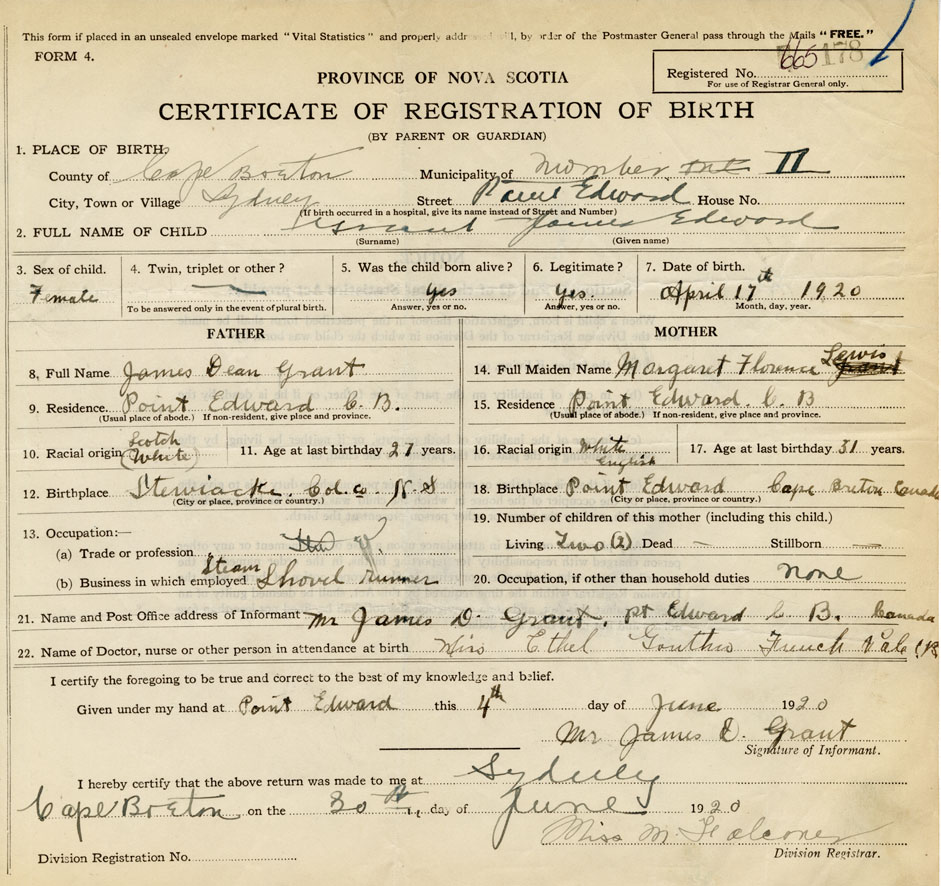 This form if placed in an unsealed envelope marked "Vital Statistics" and properly by order of the Postmaster General pass through the Mails "FREE."
FORM 4.
665 178
Registered No.
For use of Registrar General only.
PROVINCE OF NOVA SCOTIA
CERTIFICATE OF REGISTRATION OF BIRTH
(BY PARENT OR GUARDIAN)
1. PLACE OF BIRTH.
County of Cape Breton Municipality of Number II
City, Town or Village Sydney Street Point Edward House No.
(If birth occurred in a hospital, give its name instead of Street and Number)
2. FULL NAME OF CHILD Grant James Edward
(Surname) (Given name)
3. Sex of child. 4. Twin, triplet or other? 5. Was the child born alive? 6. Legitimate? 7. Date of birth.
Female — yes yes. April 17th 1920
To be answered only in the event of plural birth. Answer, yes or no. Answer, yes or no. Month, day, year.
FATHER
8, Full Name James Dean Grant
9. Residence. Point Edward C. B.
(Usual place of abode.) If non-resident, give place and province.
10. Racial origin Scotch (White) 11. Age at last birthday 27 years.
12. Birthplace Stewiacke. Col. Co. N. S
(City or place, province or country.)
13. Occupation:—
(a) Trade or profession
(b) Business in which employed Steam Shovel runner
MOTHER
14. Full Maiden Name Margaret Florence Lewis
15. Residence Point Edward. C. B
(Usual place of abode.) If non-resident, give place and province.
16. Racial origin White English 17. Age at last birthday 31 years.
18. Birthplace Point Edward Cape Breton Canada
(City or place, province or country.)
19. Number of children of this mother (including this child.)
Living Two (2) Dead — Stillborn —
20. Occupation, if other than household duties none
21. Name and Post Office address of Informant Mr James D. Grant, Pt Edward C B. Canada
22. Name of Doctor, nurse or other person in attendance at birth Miss Ethel French Vale
I certify the foregoing to be true and correct to the best of my knowledge and belief.
Given under my hand at Point Edward this 4th day of June 1920
Mr James D. Grant
Signature of Informant.
I hereby certify that the above return was made to me at Sydney
Cape Breton on the 30th day of June 1920
Miss M. Falconer
Division Registration No. Division Registrar.